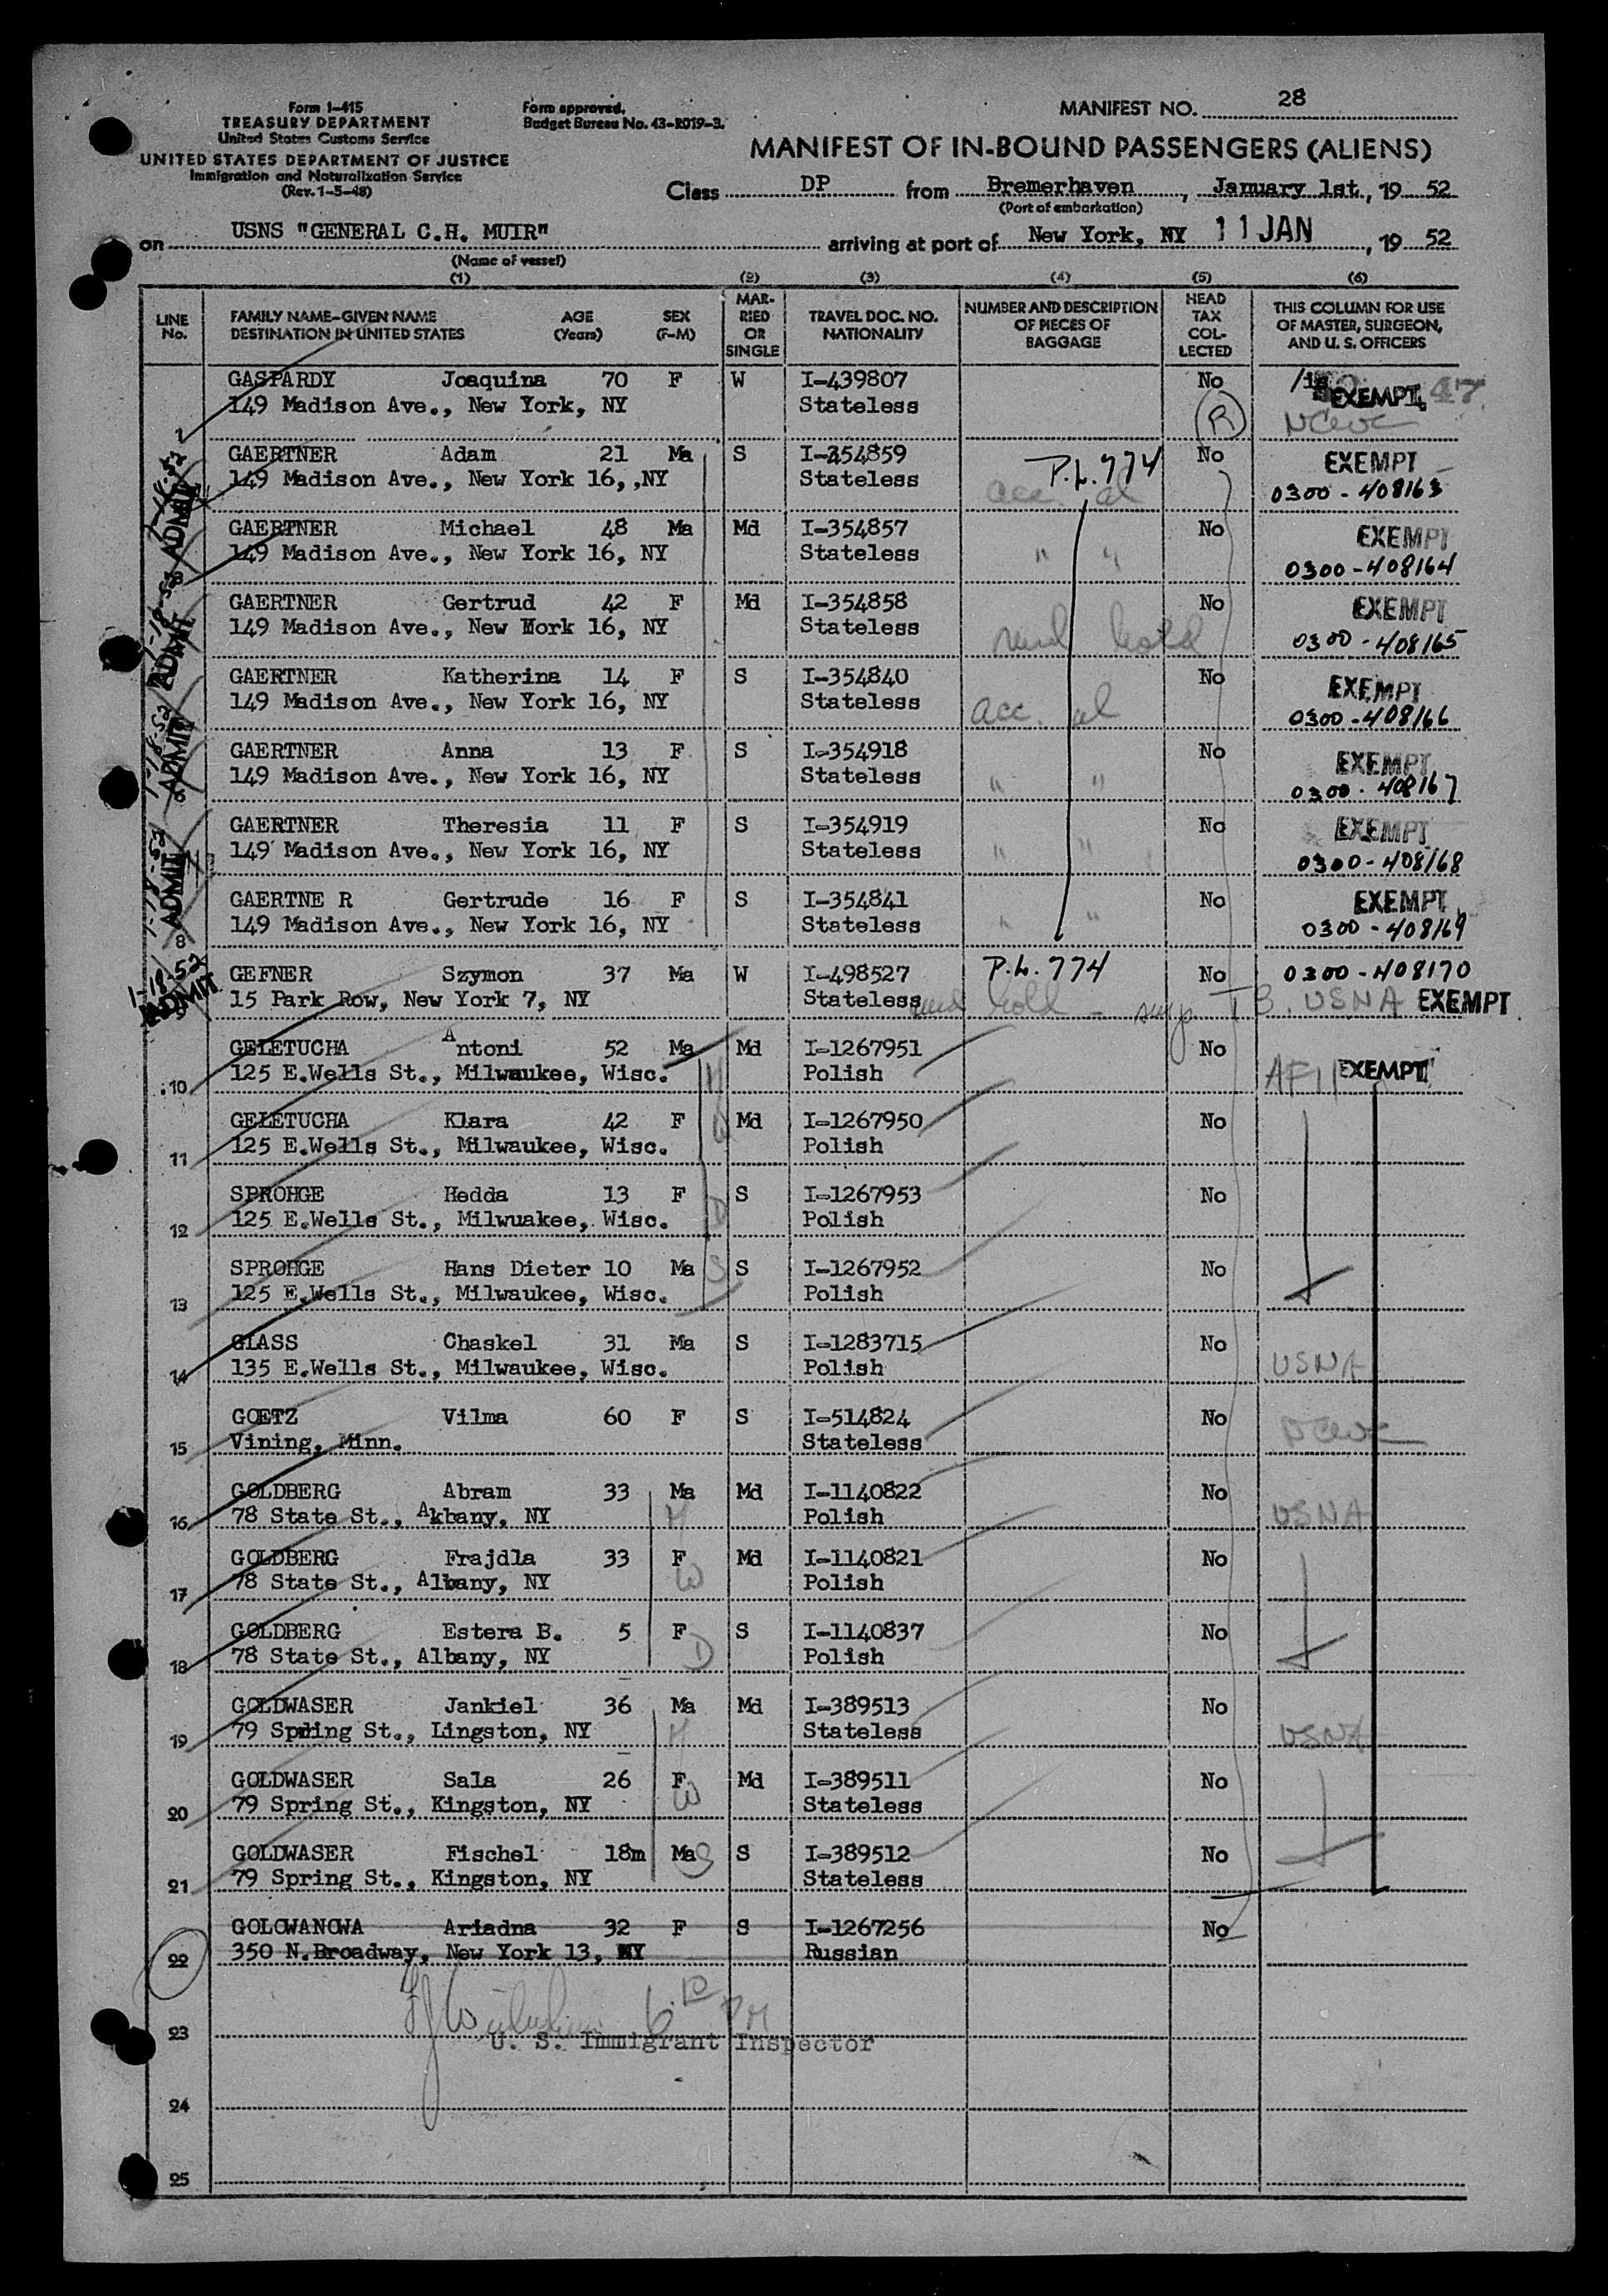 Form I-415
TREASURY DEPARTMENT
United States Customs Service
UNITED STATES DEPARTMENT OF JUSTICE
Immigration and Naturalization Service
(Rev. 1-5-48)
Form approved.
Budget Bureau No. 43-R019-3.
MANIFEST NO. 28
MANIFEST OF IN-BOUND PASSENGERS (ALIENS)
Class DP from Bremerhaven, January 1st., 19 52
(Port of embarkation)
on USNS "GENERAL C.H. MUIR" arriving at port of New York, NY 11 JAN, 19 52
(Name of vessel)
(1) (2) (3) (4) (5) (6)
LINE No. FAMILY NAME-GIVEN NAME DESTINATION IN UNITED STATES AGE (Years) SEX (F-M) MARRIED OR SINGLE TRAVEL DOC. NO. NATIONALITY NUMBER AND DESCRIPTION OF PIECES OF BAGGAGE HEAD TAX COLLECTED THIS COLUMN FOR USE OF MASTER, SURGEON, AND U. S. OFFICERS
GASPARDY Joaquina 70 F W I-439807 No EXEMPT
1 149 Madison Ave., New York, NY Stateless R NCWC
GAERTNER Adam 21 Ma S I-354859 P.L. 774 No EXEMPT
149 Madison Ave., New York 16,,NY Stateless acc. al 0300-408163
1-18-52 ADMIT
GAERTNER Michael 48 Ma Md I-354857 No EXEMPT
149 Madison Ave., New York 16, NY Stateless " " 0300-408164
GAERTNER Gertrud 42 F Md I-354858 No EXEMPT
149 Madison Ave., New Mork 16, NY Stateless hold 0300-408165
1-18-52 ADMIT
GAERTNER Katherina 14 F S I-354840 No EXEMPT
149 Madison Ave., New York 16, NY Stateless acc. al 0300-408166
GAERTNER Anna 13 F S I-354918 No EXEMPT
6 149 Madison Ave., New York 16, NY Stateless " " 0300-408167
1-18-52 ADMIT
GAERTNER Theresia 11 F S I-354919 No EXEMPT
149 Madison Ave., New York 16, NY Stateless " " 0300-408168
GAERTNE R Gertrude 16 F S I-354841 No EXEMPT
8 149 Madison Ave., New York 16, NY Stateless " " 0300-408169
1-18-52 ADMIT
GEFNER Szymon 37 Ma W I-498527 P.L. 774 No 0300-408170
15 Park Row, New York 7, NY Stateless hold - TB. USNA EXEMPT
1-18-52 ADMIT
GELETUCHA Antoni 52 Ma Md I-1267951 No EXEMPT
10 125 E.Wells St., Milwaukee, Wisc. H Polish
GELETUCHA Klara 42 F Md I-1267950 No
11 125 E.Wells St., Milwaukee, Wisc. W Polish
SPROHGE Hedda 13 F S I-1267953 No
12 125 E.Wells St., Milwuakee, Wisc. D Polish
SPROHGE Hans Dieter 10 Ma S S I-1267952 No
13 125 E.Wells St., Milwaukee, Wisc. Polish
GLASS Chaskel 31 Ma S I-1283715 No
14 135 E.Wells St., Milwaukee, Wisc. Polish USNA
GOETZ Vilma 60 F S I-514824 No
15 Vining, Minn. Stateless NCWC
GOLDBERG Abram 33 Ma Md I-1140822 No
16 78 State St., Akbany, NY H Polish USNA
GOLDBERG Frajdla 33 F Md I-1140821 No
17 78 State St., Albany, NY W Polish
GOLDBERG Estera B. 5 F S I-1140837 No
18 78 State St., Albany, NY D Polish
GOLDWASER Jankiel 36 Ma Md I-389513 No
19 79 Spring St., Lingston, NY H Stateless USNA
GOLDWASER Sala 26 F Md I-389511 No
20 79 Spring St., Kingston, NY W Stateless
GOLDWASER Fischel 18m Ma S S I-389512 No
21 79 Spring St., Kingston, NY Stateless
GOLOWANOWA Ariadna 32 F S I-1267256 No
22 350 N.Broadway, New York 13, NY Russian
23
U. S. Immigrant Inspector
24
25